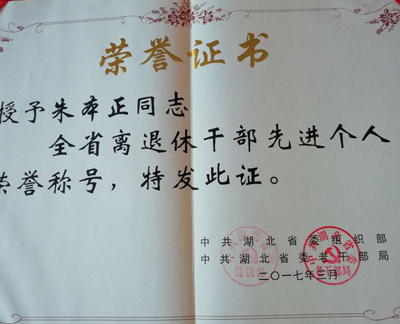 荣誉证书
授予朱本正同志
全省离退休干部先进个人
荣誉称号，特发此证。
中共湖北省委组织部
中共湖北省委老干部局
二〇一七年三月